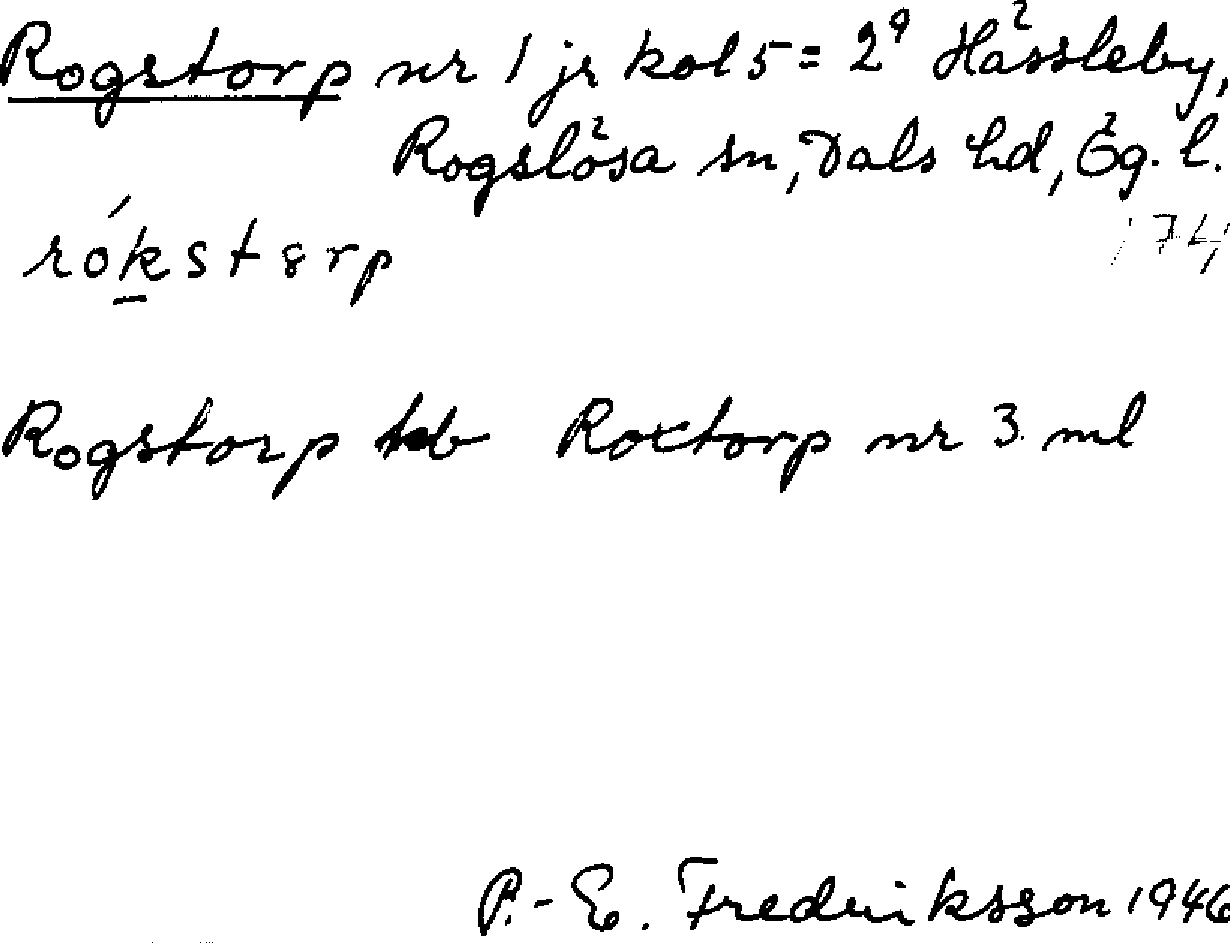 Rogstorp nr 1 jr kol 5 = 2⁹ Hässleby,
Rogslösa sn, Dals hd, Ög. l.
rókstɵrp
174
Rogstorp jb Roxtorp nr 3 ml
P.-E. Fredriksson 1946